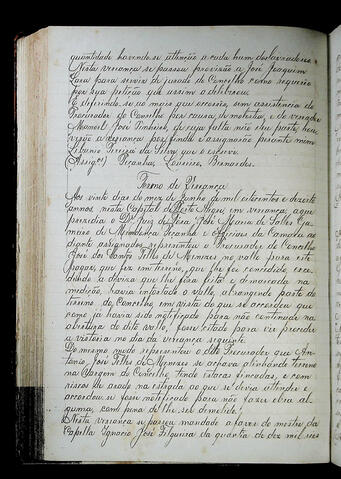 quantidade havendo-se attenção a cada hum dos lavradores.
Nesta vereança se passou provisão a José Joaquim
Lara para servir de jurado do Concelho como requereu
por sua petição que assim o deliberou
E deferindo-se ao mais que occorreu, sem assistencia do
Procurador do Concelho por causa de molestia, e do vereador
Manoel José Pinheiro, de cuja falta não
a vereança por finda e assignarão perante mim
Pereira da Silva que o escrevi
Peçanha, Loureiro, Bernardes.
Termo de Vereança
Aos vinte dias do mez de Junho de mil oitocentos e dezoito
annos nesta Capital de Porto Alegre em vereança a que
prezidio o Dr. Juiz de Fóra José Maria de Salles Ga-
meiro de Mendonça Peçanha e Officiaes da Camara ao
diante assignados representou o Procurador do Concelho
José dos Santos Filho de Menezes no vallo para este
lugar, que fez em terreno, que lhe foi concedido, exce-
dendo a deviza que lhe fora feita e demarcada na
medição, havia intestado o vallo, abrangendo parte do
terreno do Concelho, em vista do que se accordou que
como já havia sido notificado para não continuar na
abertura do dito vallo, fosse citado para vir proceder
a vistoria no dia da vereança seguinte.
Do mesmo modo representou o dito Procurador que An-
tonio José Filho de Menezes se achava alinhando terreno
na Vargem do Concelho, tendo estacas fincadas, e com
riscos de arado na estrada ao que se devia attender e
accordou-se fosse notificado para não fazer obra al-
guma, com pena de lhe ser demolida.
Nesta vereança se passou mandado a favor do mestre da
Capella Ignacio José Filgueira da quantia de dez mil reis